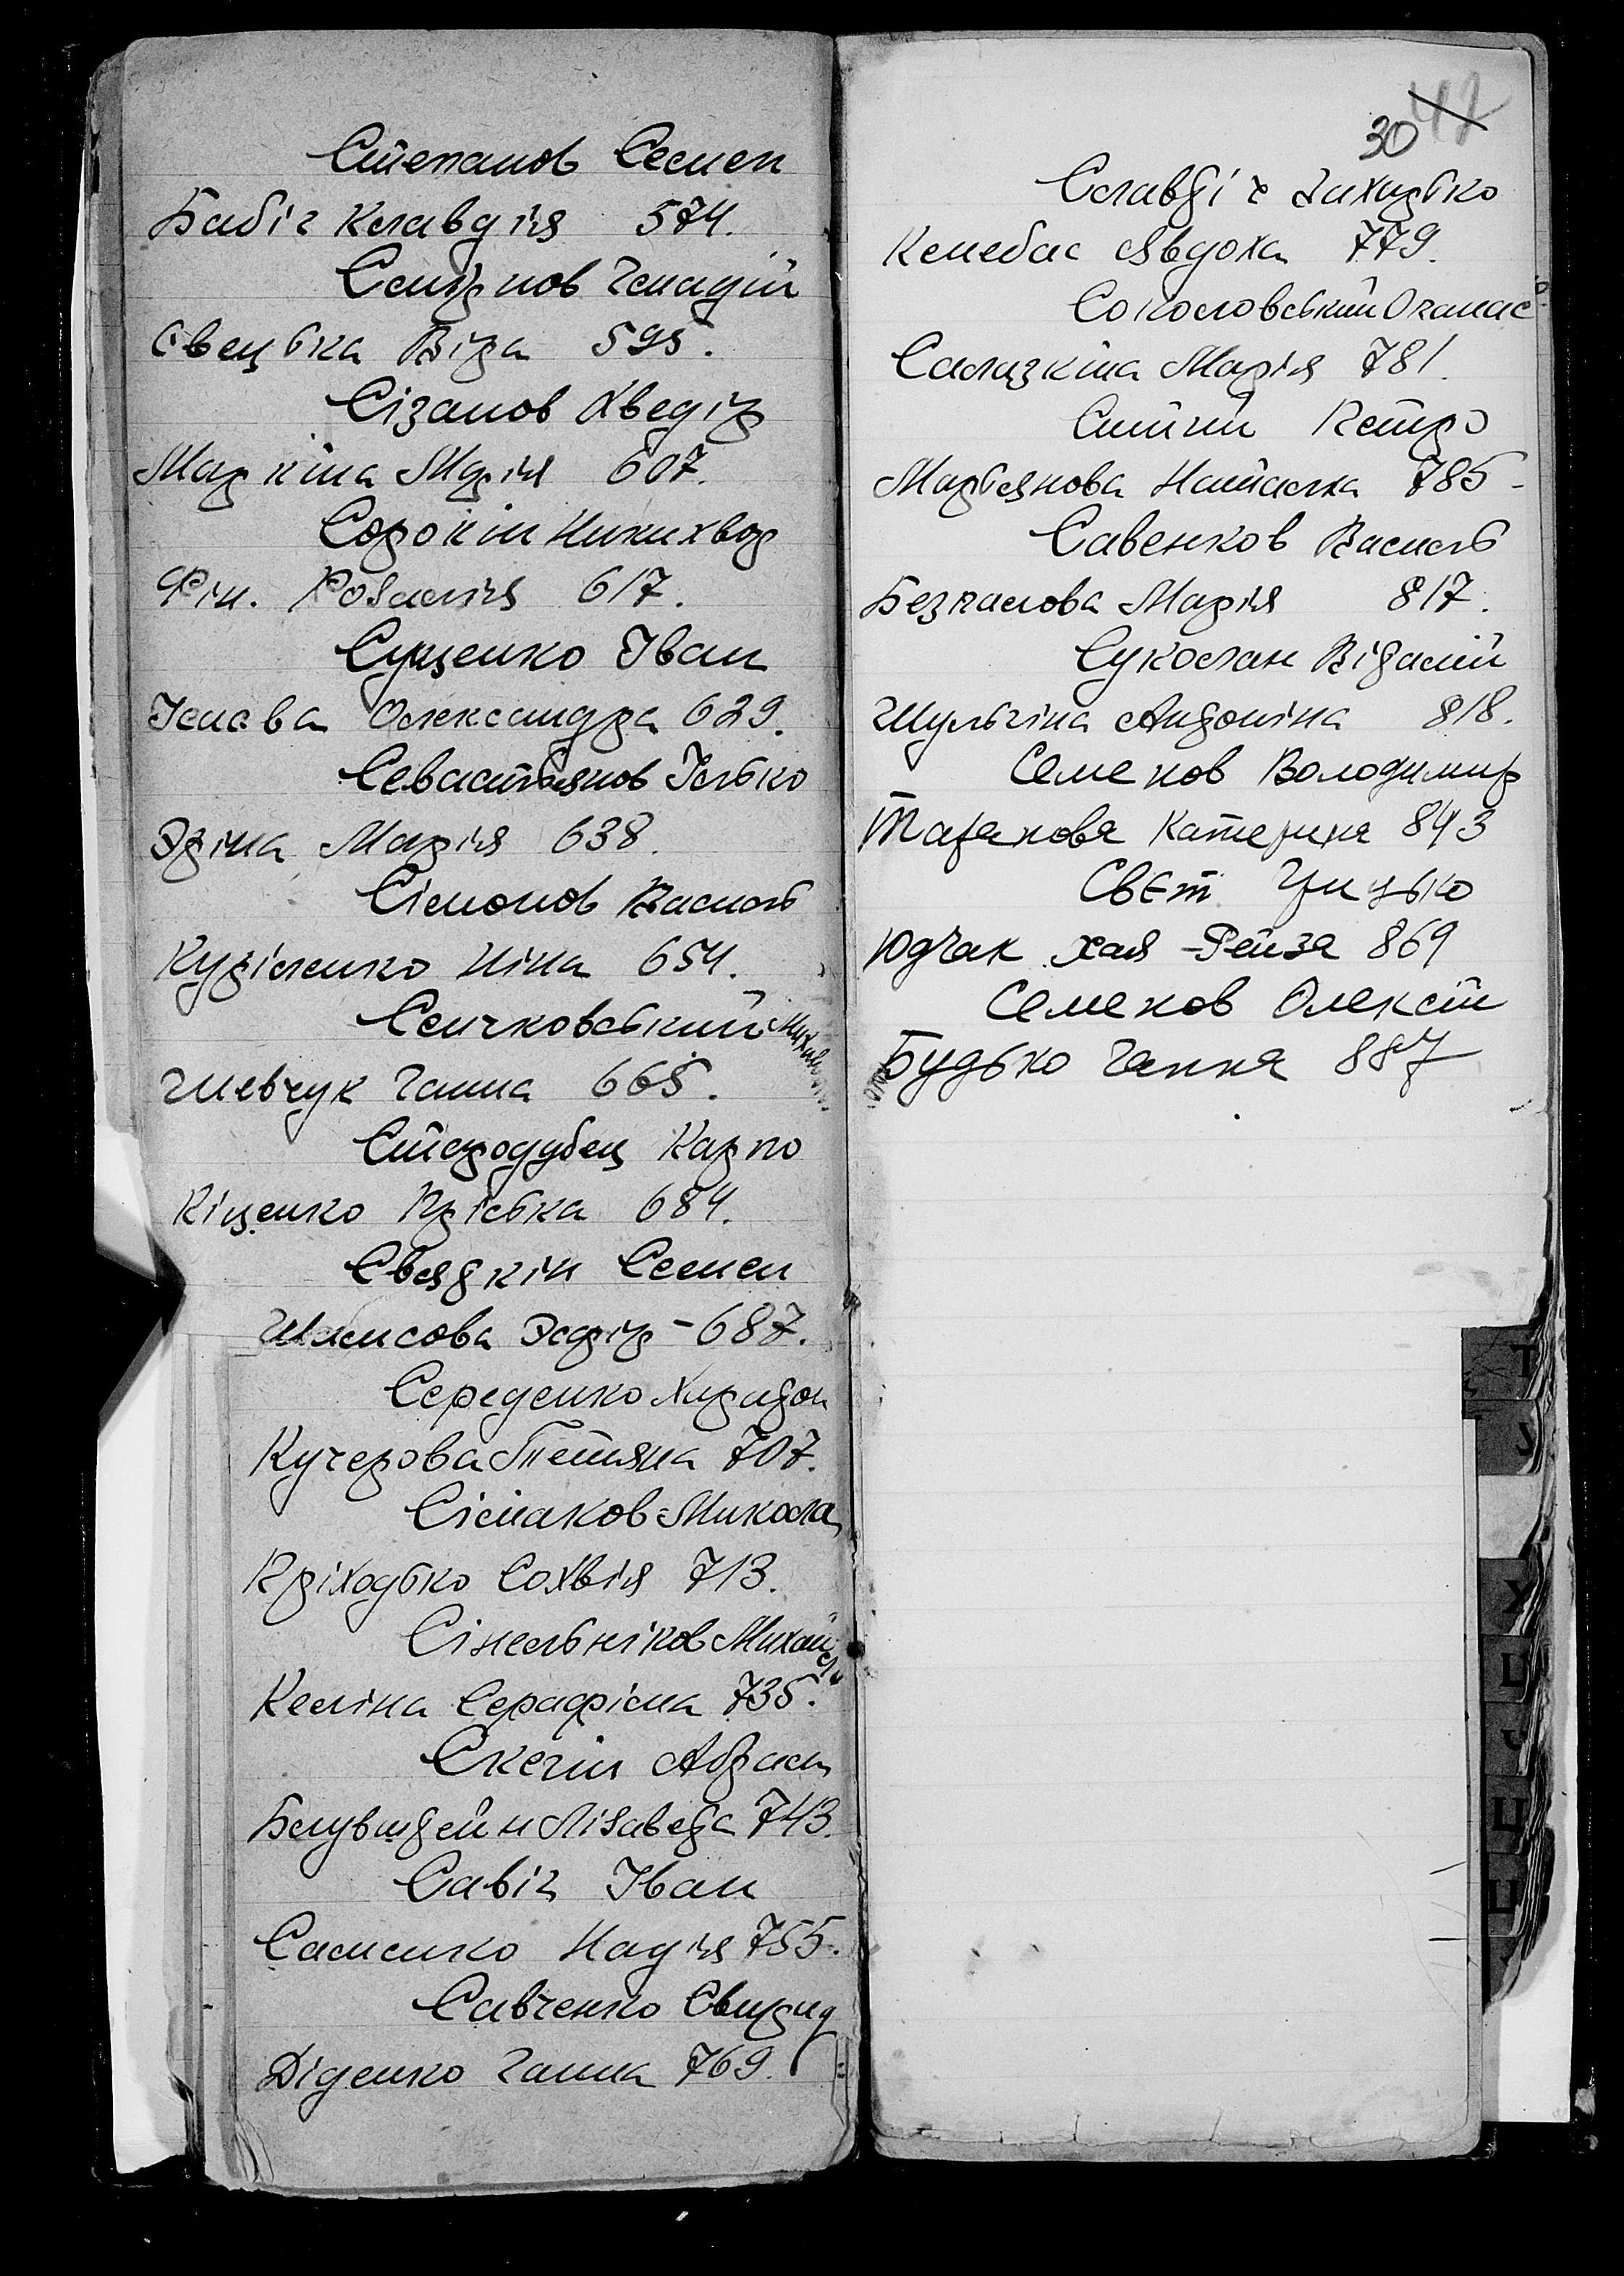 Степанов Семен
Бабіч Клавдія 574.
Смірнов Генадій
Свецька Віра 595.
Сізанов Хведір
Маркіна Марія 607.
Сорокін Никихвор
Фін. Розалія 617.
Сущенко Іван
Ісаєва Олександра 629.
Севастьянов Ілько
Эріна Марія 638.
Сімонов Василь
Куріленко Ніна 654.
Сенчковський Михайло
Шевчук Ганна 665.
Стародубец Карпо
Кіценко Прiська 684.
Свядкін Семен
Шамсова Эсфір - 687.
Середенко Харидон
Кучерова Тетяна 707.
Сімаков Микола
Пріходько Сохвія 713.
Сінельніков Михайло
Келіна Серафіма 735.
Скечін Абрам
Блувшдейн Лізаведа 743.
Савіч Іван
Саненко Надія 755.
Савченко Свирид
Діденко Ганна 769.
42
30
Славдіч Захарько
Кемебас Явдоха 779.
Соколовський Опанас
Салазкіна Марія 781.
Ситий Петро
Мартьянова Наталка 785-
Савенков Василь
Безпалова Марія 817.
Суколан Відалій
Шульгіна Андоніна 818.
Семенов Володимир
Таранова Катерина 843
Свєт Грицько
Юдчак Хая-Рейза 869
Семенов Олексій
Будько Ганна 887
Т
У
Х
Ц
Ч
Ш
Щ